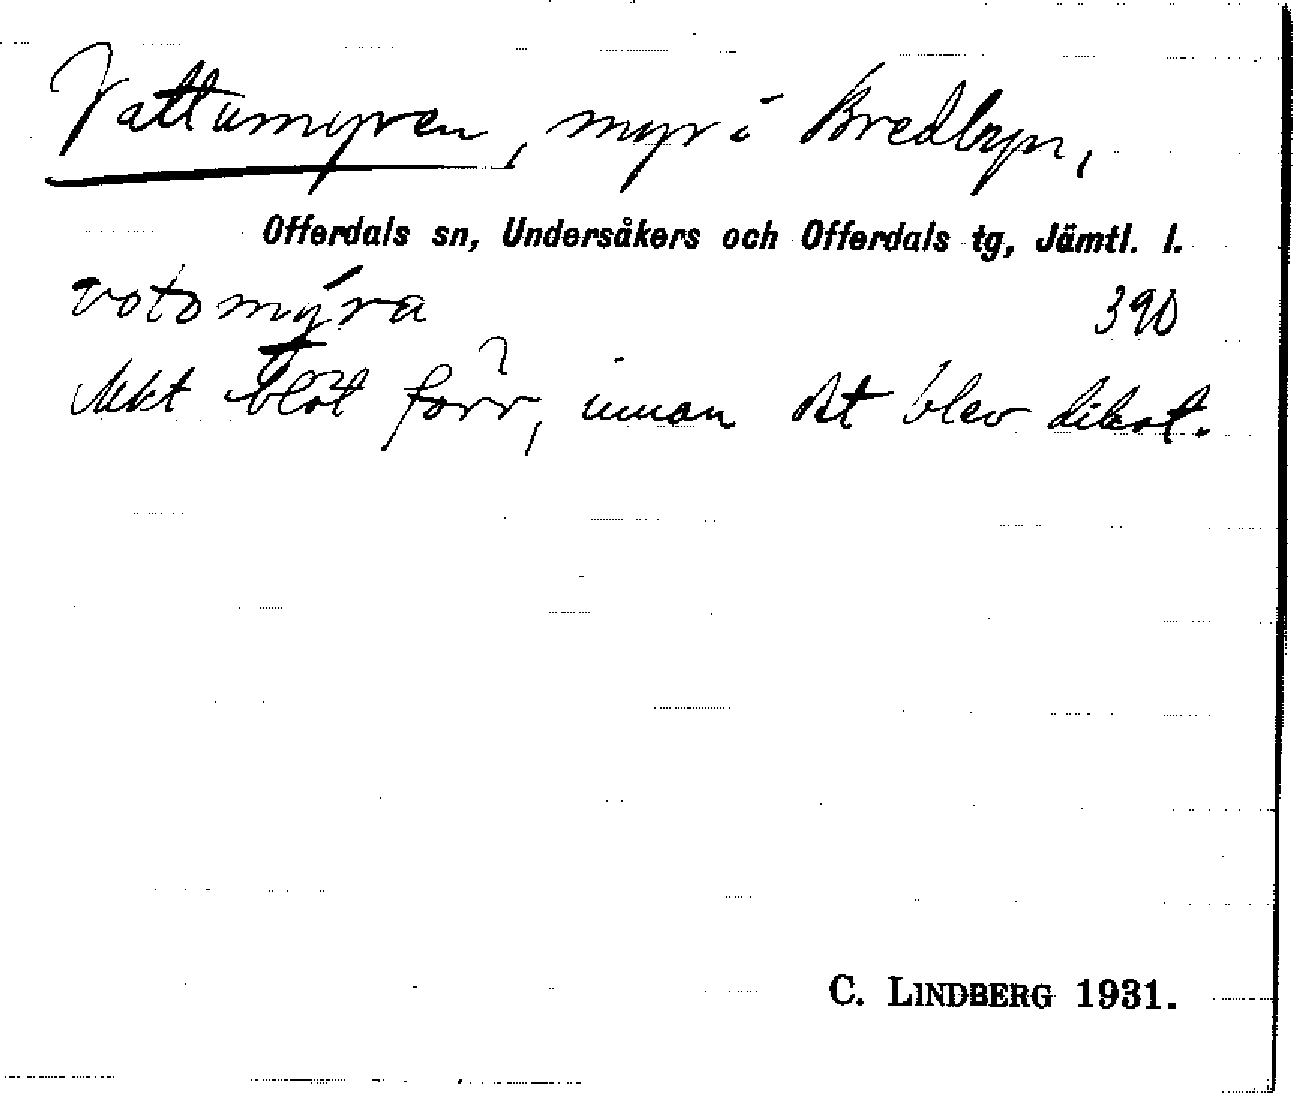 Vattumyren, myr i Bredbyn,
Offerdals sn, Undersåkers och Offerdals tg, Jämtl. l.
votomýra 390
Mkt blöt förr, innan det blev dikat.
C. LINDBERG 1931.